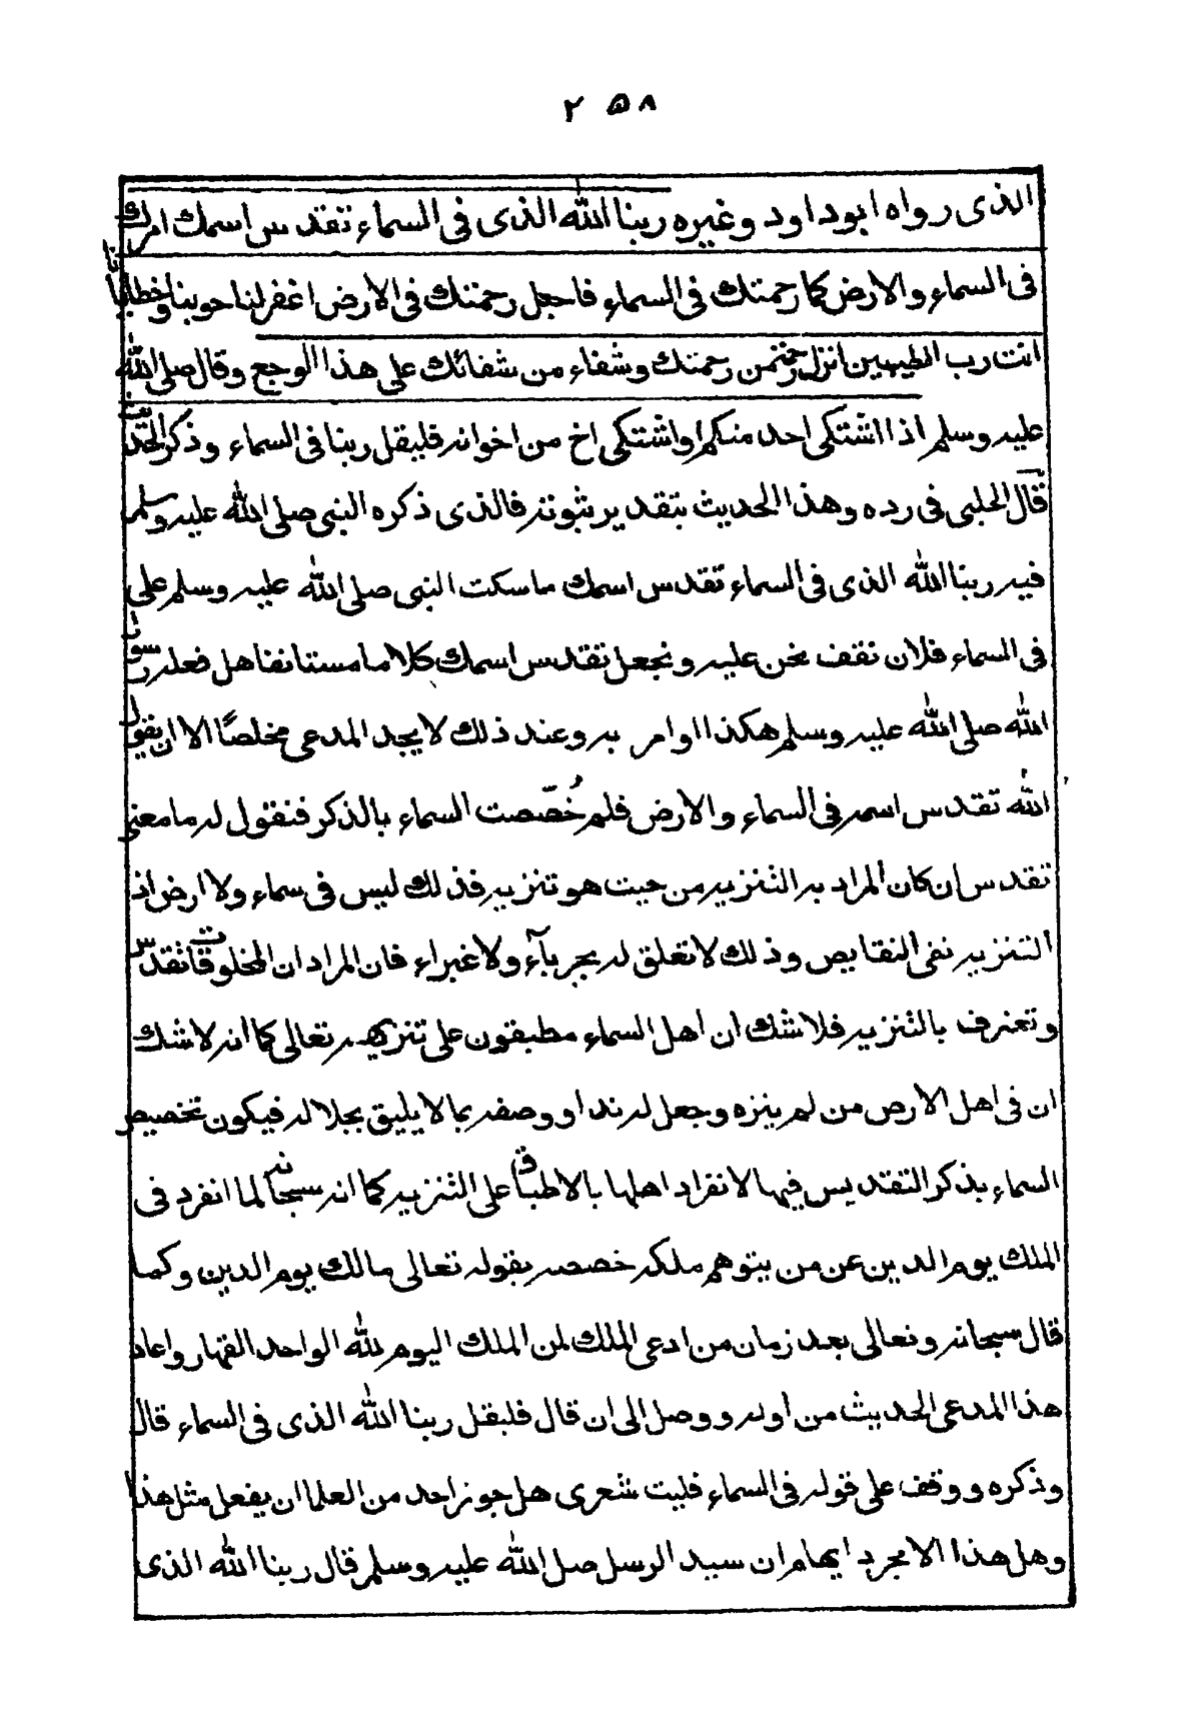 ٢٥٨
الذى رواه ابوداود وغيره ربنا الله الذى فى السماء تقدس اسمك امرك
فى السماء والارض كما رحمتك فى السماء فاجعل رحمتك فى الارض اغفرلنا حوبنا وخطايانا
انت رب الطيبين انزل رحمة من رحمتك وشفاء من شفائك على هذا الوجع وقال صلى الله
عليه وسلم اذا اشتكى احد منكم او اشتكى اخ من اخوانه فليقل ربنا فى السماء وذكر الحديث
قال الحلبى فى رده وهذا الحديث بتقدير ثبوته فالذى ذكره النبى صلى الله عليه وسلم
فيه ربنا الله الذى فى السماء تقدس اسمك ما سكت النبى صلى الله عليه وسلم على
فى السماء فلان نقف نحن عليه ونجعل تقدس اسمك كلاما مستانفا هل فعله رسول
الله صلى الله عليه وسلم هكذا او امر به وعند ذلك لا يجد المدعى مخلصًا الا ان يقول
الله تقدس اسمه فى السماء والارض فلم خُصّصت السماء بالذكر فنقول له ما معنى
تقدس ان كان المراد به التنزيه من حيث هو تنزيه فذلك ليس فى سماء ولا ارض اذ
التنزيه نفى النقايص وذلك لا تعلق له بجرباء ولا غبراء فان المراد ان المخلوقات تقدس
وتعترف بالتنزيه فلا شك ان اهل السماء مطبقون على تنزيهه تعالى كما انه لا شك
ان فى اهل الارض من لم ينزه وجعل له ندا او وصفه بما لا يليق بجلاله فيكون تخصيص
السماء بذكر التقديس فيها لانفراد اهلها بالاطباق على التنزيه كما انه سبحانه لما انفرد فى
الملك يوم الدين عن من يتوهم ملكه خصصه بقوله تعالى مالك يوم الدين وكما
قال سبحانه وتعالى بعد زمان من ادعى الملك لمن الملك اليوم لله الواحد القهار واعاد
هذا المدعى الحديث من اوله ووصل الى ان قال فليقل ربنا الله الذى فى السماء قال
وذكره ووقف على قوله فى السماء فليت شعرى هل جوز احد من العلما ان يفعل مثل هذا
وهل هذا الا مجرد ايهام ان سيد الرسل صلى الله عليه وسلم قال ربنا الله الذى